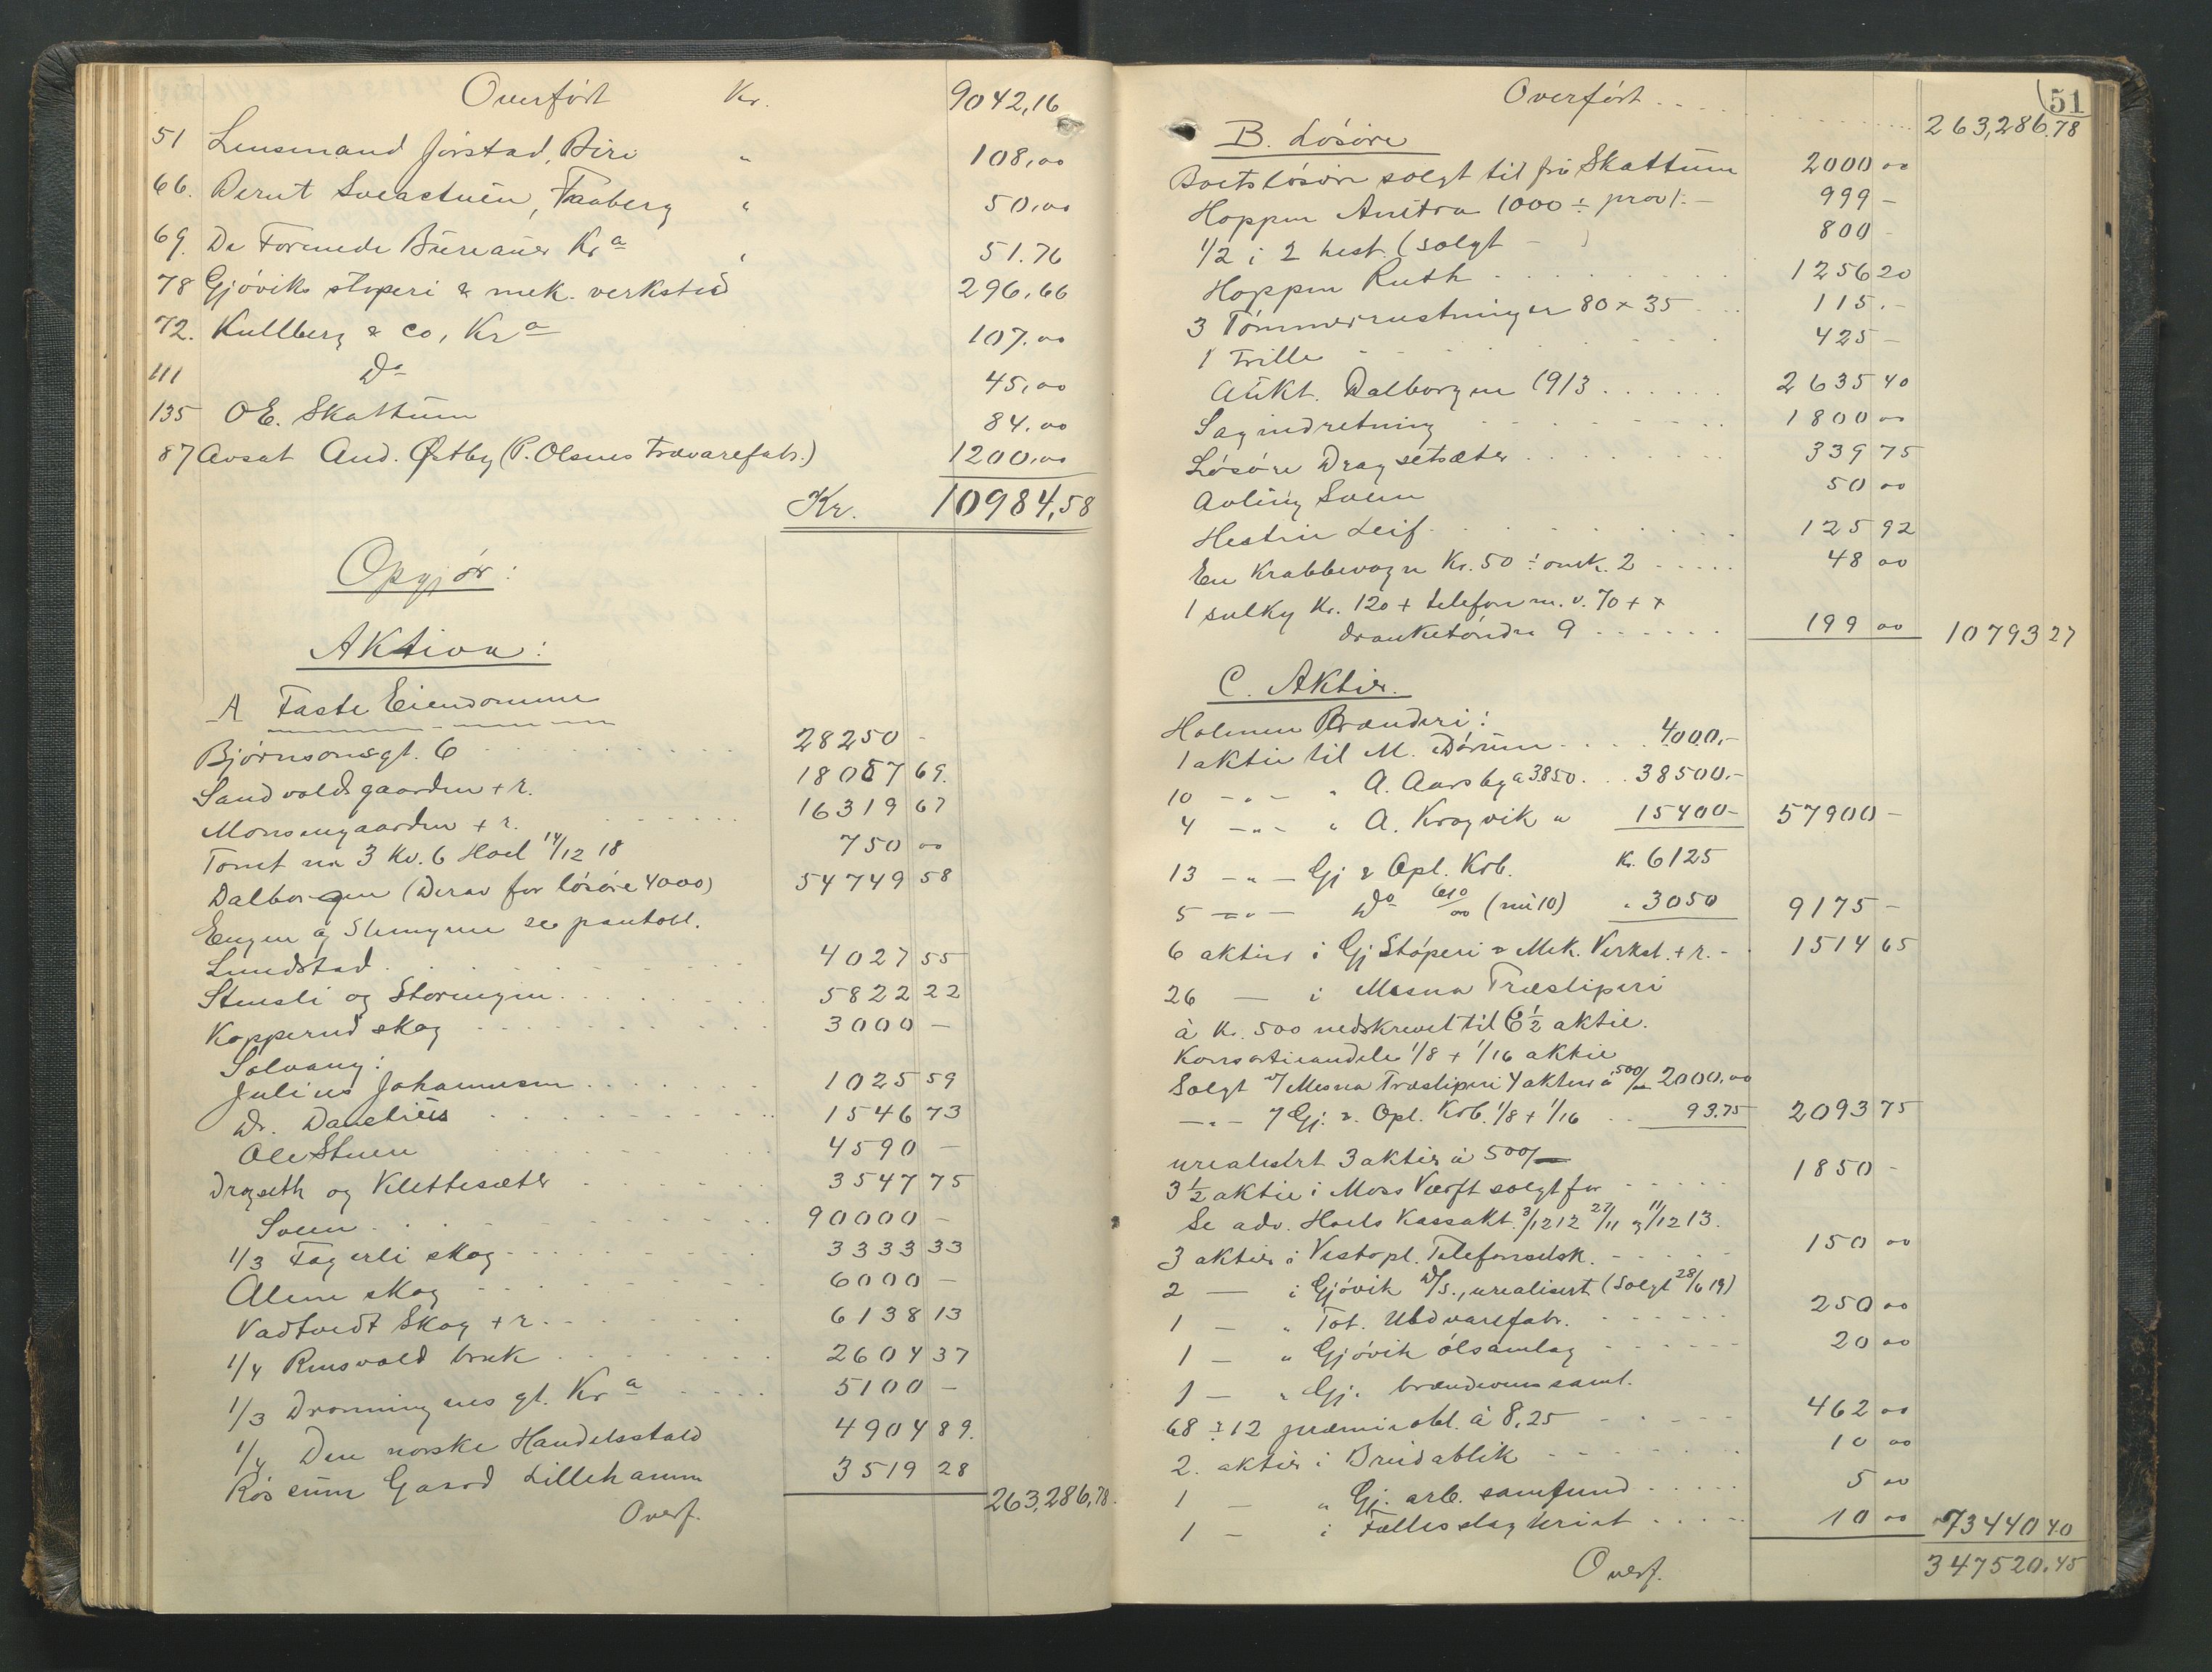 Overført Kr. 9042,16
51 Lensmand Jørstad, Biri " 108,00
66. Bernt Sveastuen, Faaberg " 50,00
69. De Forenede Bureauer Kra " 51.76
78 Gjøvik støperi & mek. verksted 296,66
72. Kullberg & Co, Kra 107.00
111 Do 45,00
135 O.E. Skattum 84.00
87 Avsat And. Østby (P. Olsens Trævarefabr.) 1200,00
Kr. 10984,58
Opgjør:
Aktiva:
A Faste Eiendomme
Bjørnsonsgt. 6 28250 -
Sandvoldsgaarden + r. 18057 69.
Monsengaarden + r. 16319 67
Tomt nr 3 Kv. 6 Hoel 14/12 18 750 00
Dalborgen (Derav for løsøre 4000) 54749 58
Engen og Slaengene se pantobl.
Lundstad 4027 55
Stensli og Storengen 5822 22
Kopperud skog 3000 -
Solvang:
Julius Johannesen 1025 59
Dr. Danelius 1546 73
Ole Stuen 4590 -
Dragseth og Klettesæter 3547 75
Sveen 90000 -
1/3 Fagerli skog 3333 33
Alme skog 6000 -
Vadtvedt Skog + r. 6138 13
1/4 Rensvold bruk 2604 37
1/3 Dronningens gt. Kra 5100 -
1/4 Den norske Handelsstald 4904 89.
Røssum Gaard Lillehammer 3519 28
Overf. 263,286,78.
51
Overført 263,286.78
B. Løsøre
Boets løsøre solgt til fru Skattum 2000 00
Hoppen Anitra 1000 ÷ prov 1.- 999 -
1/2 i 2 hest. (solgt - ) 800 -
Hoppen Ruth 1256 20
3 Tømmerrustninger 80 + 35 115.-
1 Trille 425 -
Aukt. Dalborgen 1913 2635 40
Sagindretning 1800 00
Løsøre Dragsetsæter 339 75
Avling Sveen 50 00
Hesten Leif 125 92
En Krabbevogn Kr. 50 ÷ omk. 2 48 00
1 sulky Kr. 120 + telefon m. v. 70 + +
dranketønder 9 199 00 10793 27
C. Aktier.
Holmen Brænderi:
1 aktie til M. Dørum 4000,-
10 -"- " A. Aarsby a 3850. 38500.-
4 -"- " A. Kragvik " 15400- 57900 -
13 -"- Gj & Opl. Krb. Kr. 6125
5 -"- Do 610/00 (nu 10) " 3050 9175 -
6 aktier i Gj Støperi & Mek. Verkst. + r. - 1514 65
26 — i Mesna Træsliperi
à Kr. 500 nedskrevet til 6 1/2 aktie.
Konsortieandele 1/8 + 1/16 aktie
Solgt v/ Mesna Træsliperi 4 aktier à 500/- 2000.00
-"- 7 Gj. & Opl. Krb. 1/8 + 1/16 93.75 2093 75
urealisert 3 aktier à 500/-
3 1/2 aktie i Moss Værft solgt for 1850 -
Se adv. Hoels Kassakt. 3/12 12 27/11 og 11/12 13.
3 aktier i Vestopl. Telefonselsk. 150 00
2 — i Gjøvik D/S., urealisert (Solgt 28/6 19)
1 — " Tot. Uldvarefabr. 250 00
1 — " Gjøvik ølsamlag 20 00
1 — " Gj. brændevinssaml.
68 ÷ 12 præmieobl. à 8,25 462 00
2. aktier i Breidablik 10 00
1 — " Gj. arb. samfund 5 00
1 — i Fællesslagteriet 10 00 73440 40
Overf. 347520.45